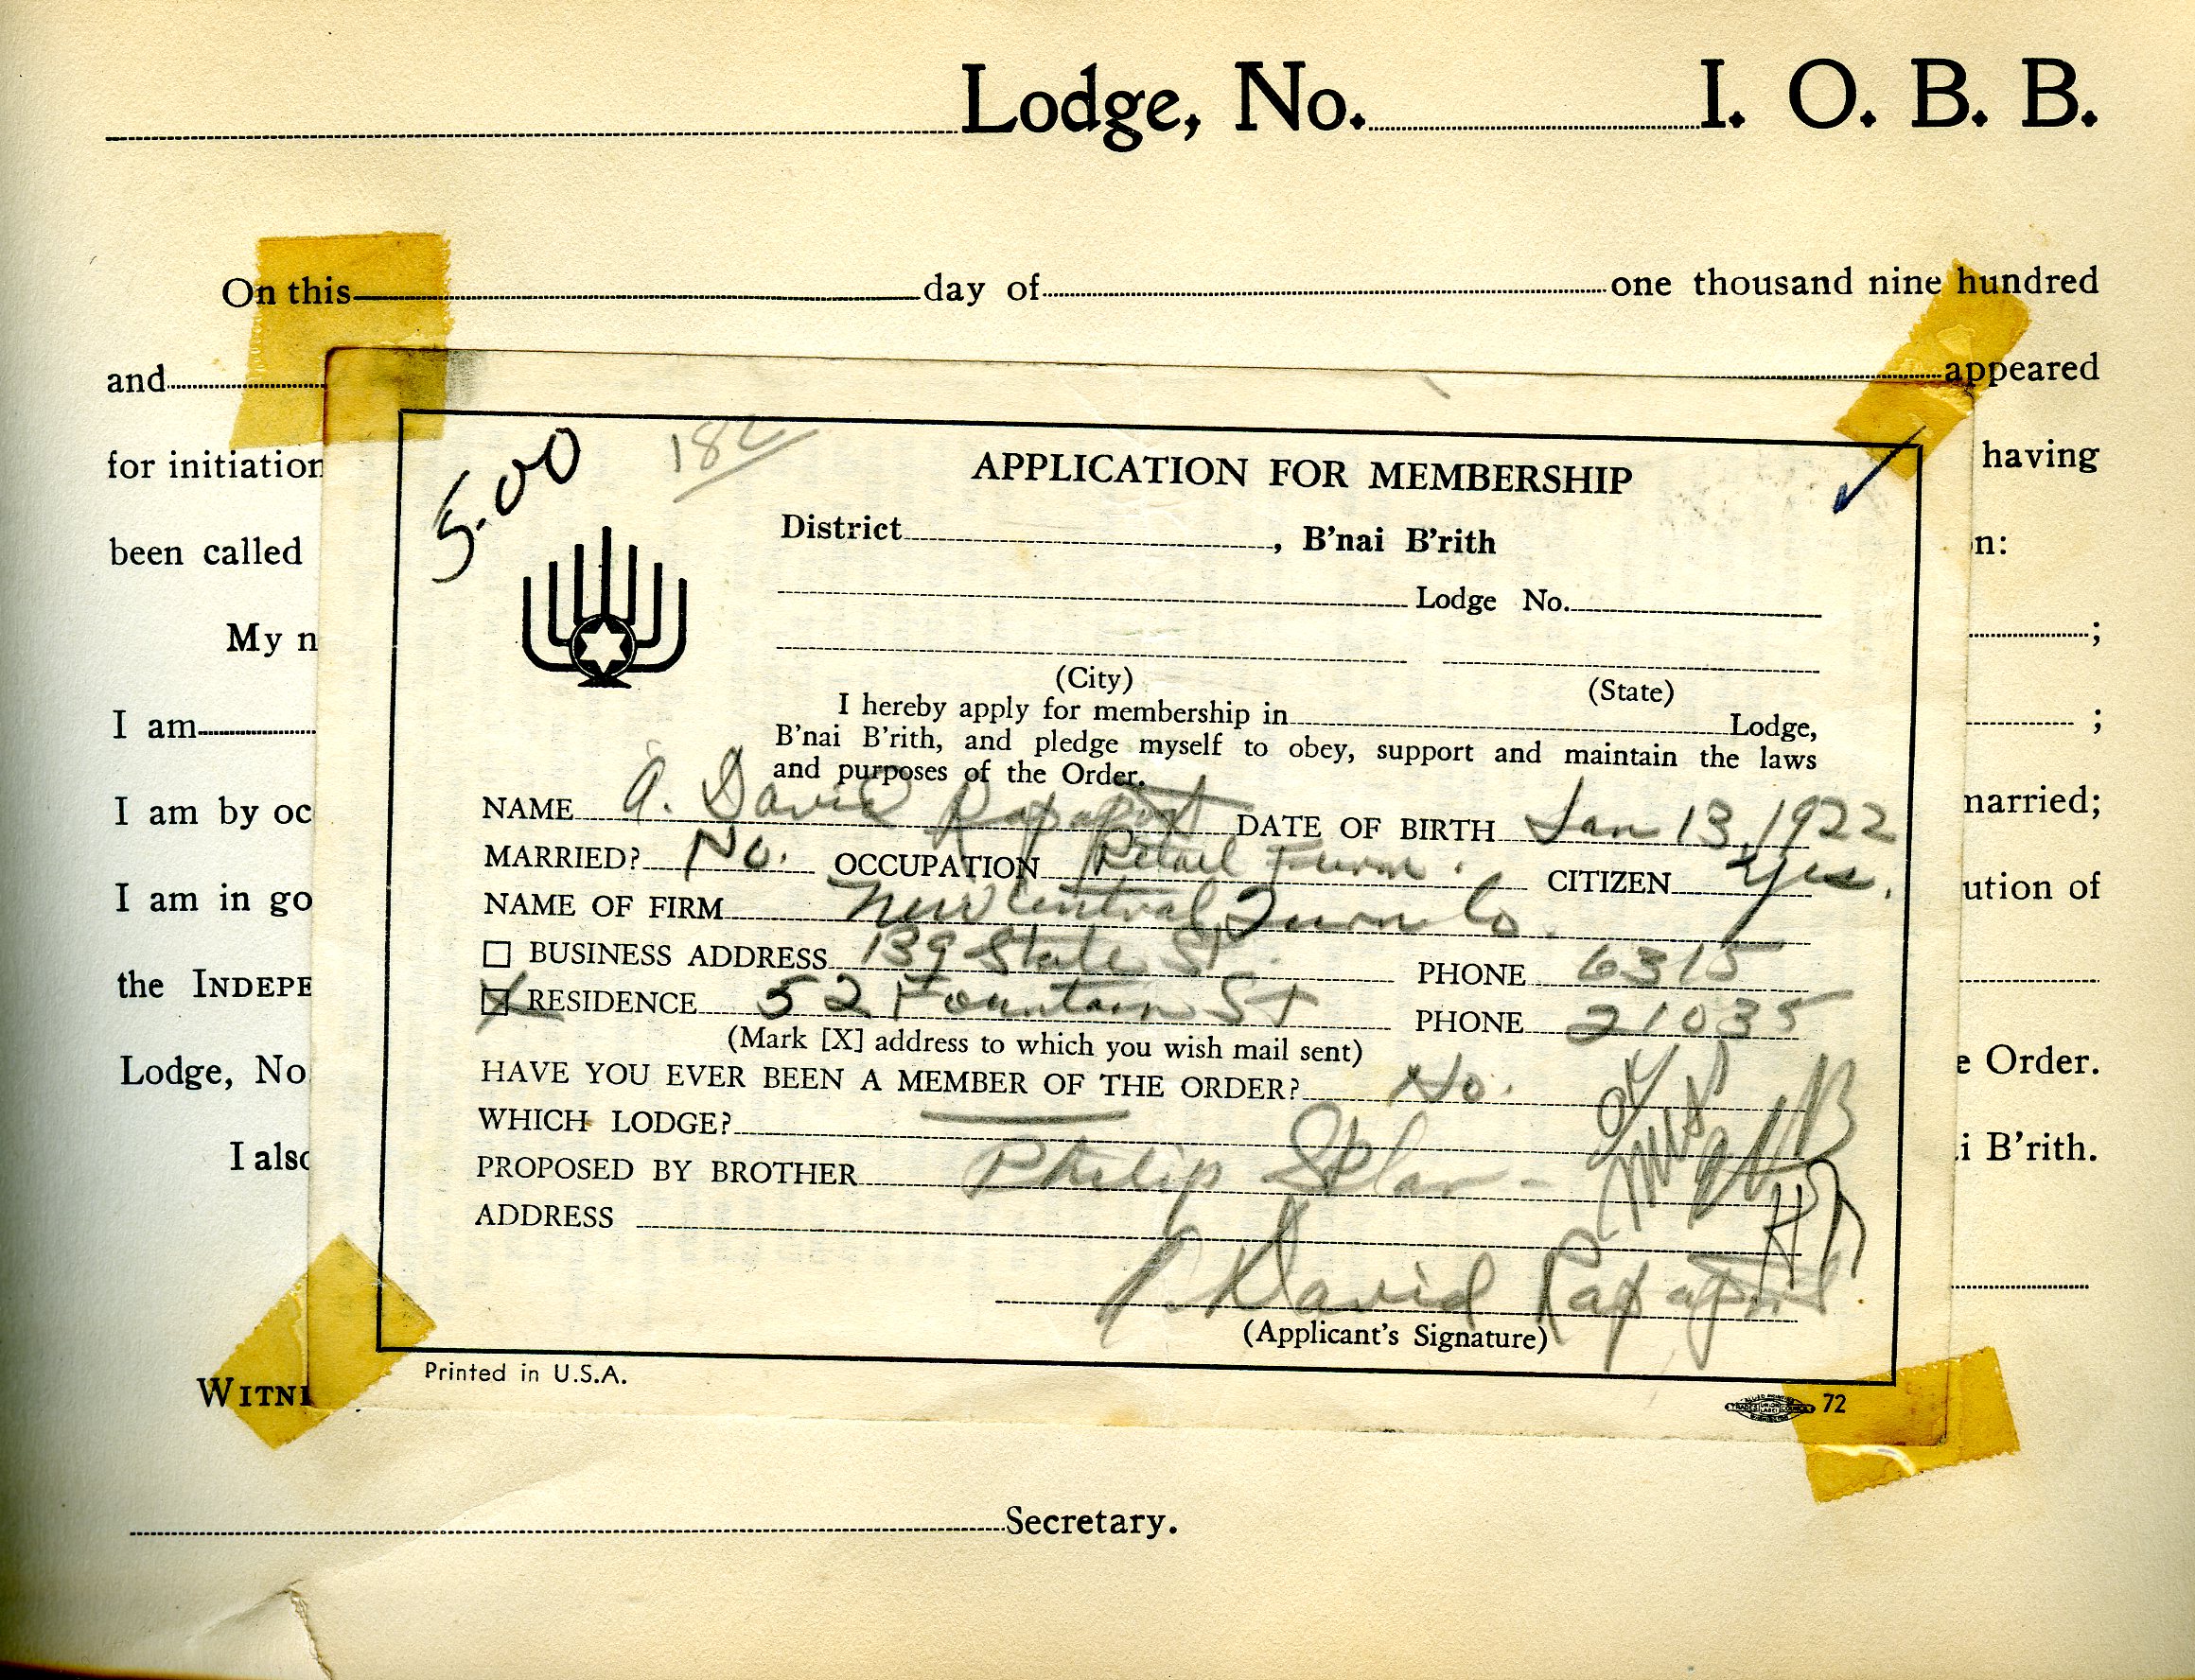 Lodge, No. I. O. B. B.
On this day of one thousand nine hundred
and appeared
for initiation having
been called n:
My n ;
I am ;
I am by oc married;
I am in go ution of
the INDEPE
Lodge, No e Order.
I also i B'rith.
WITNE
Secretary.
5.00
APPLICATION FOR MEMBERSHIP
District , B'nai B'rith
Lodge No.
(City) (State)
I hereby apply for membership in Lodge,
B'nai B'rith, and pledge myself to obey, support and maintain the laws
and purposes of the Order.
NAME A. David Rapaport DATE OF BIRTH Jan 13, 1922
MARRIED? No. OCCUPATION Retail Furn. CITIZEN Yes.
NAME OF FIRM New Central Furn Co.
BUSINESS ADDRESS 139 State St. PHONE 6315
X RESIDENCE 52 Fountain St PHONE 21035
(Mark [X] address to which you wish mail sent)
HAVE YOU EVER BEEN A MEMBER OF THE ORDER? No.
WHICH LODGE?
PROPOSED BY BROTHER Philip
ADDRESS
A. David Rapaport
(Applicant's Signature)
Printed in U.S.A.
72